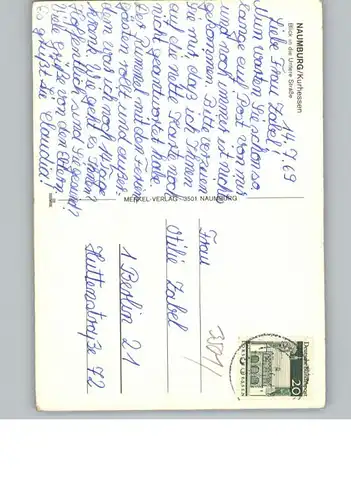 NAUMBURG/Kurhessen
Blick in die Untere Straße
14.7.69
Liebe Frau Zabel!
Nun warten Sie schon so
lange auf Post von mir
und noch immer ist nichts
gekommen. Bitte verzeihen
Sie mir, daß ich Ihnen
auf die nette Karte noch
nicht geantwortet habe.
Der Rummel mit den Ferien
ganz toll und außer-
dem war ich noch Tage
krank. Wie geht es Ihnen?
Hoffentlich sind Sie gesund!
Viele Grüße von den Eltern
Es grüßt Sie Claudia!
MERKEL-VERLAG - 3501 NAUMBURG
Frau
Otilie Zabel
1 Berlin 21
Huttenstraße 72
3501
Deutsche Bundespost
20